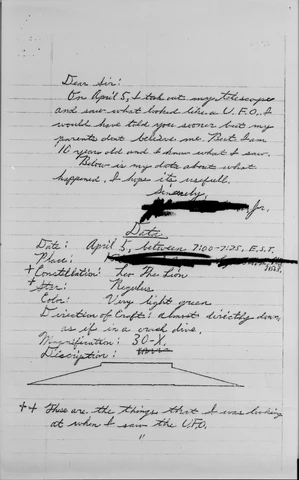 Dear Sir:
On April 5, I took out my telescope
and saw what looked like a U.F.O. I
would have told you sooner but my
parents dont believe me. But I am
10 years old and I know what I saw.
Below is my data about what
happened. I hope its usefull.
Sincerely,
Jr.
Data
Date: April 5, between 7:00-7:25, E.S.T.
Place:
+Constellation: Leo The Lion
+Star: Regulus
Color: Very light green
Direction of Craft: almost directly down,
as if in a crash dive.
Magnification: 30-X.
Discription:
++ These are the things that I was looking
at when I saw the U.F.O.